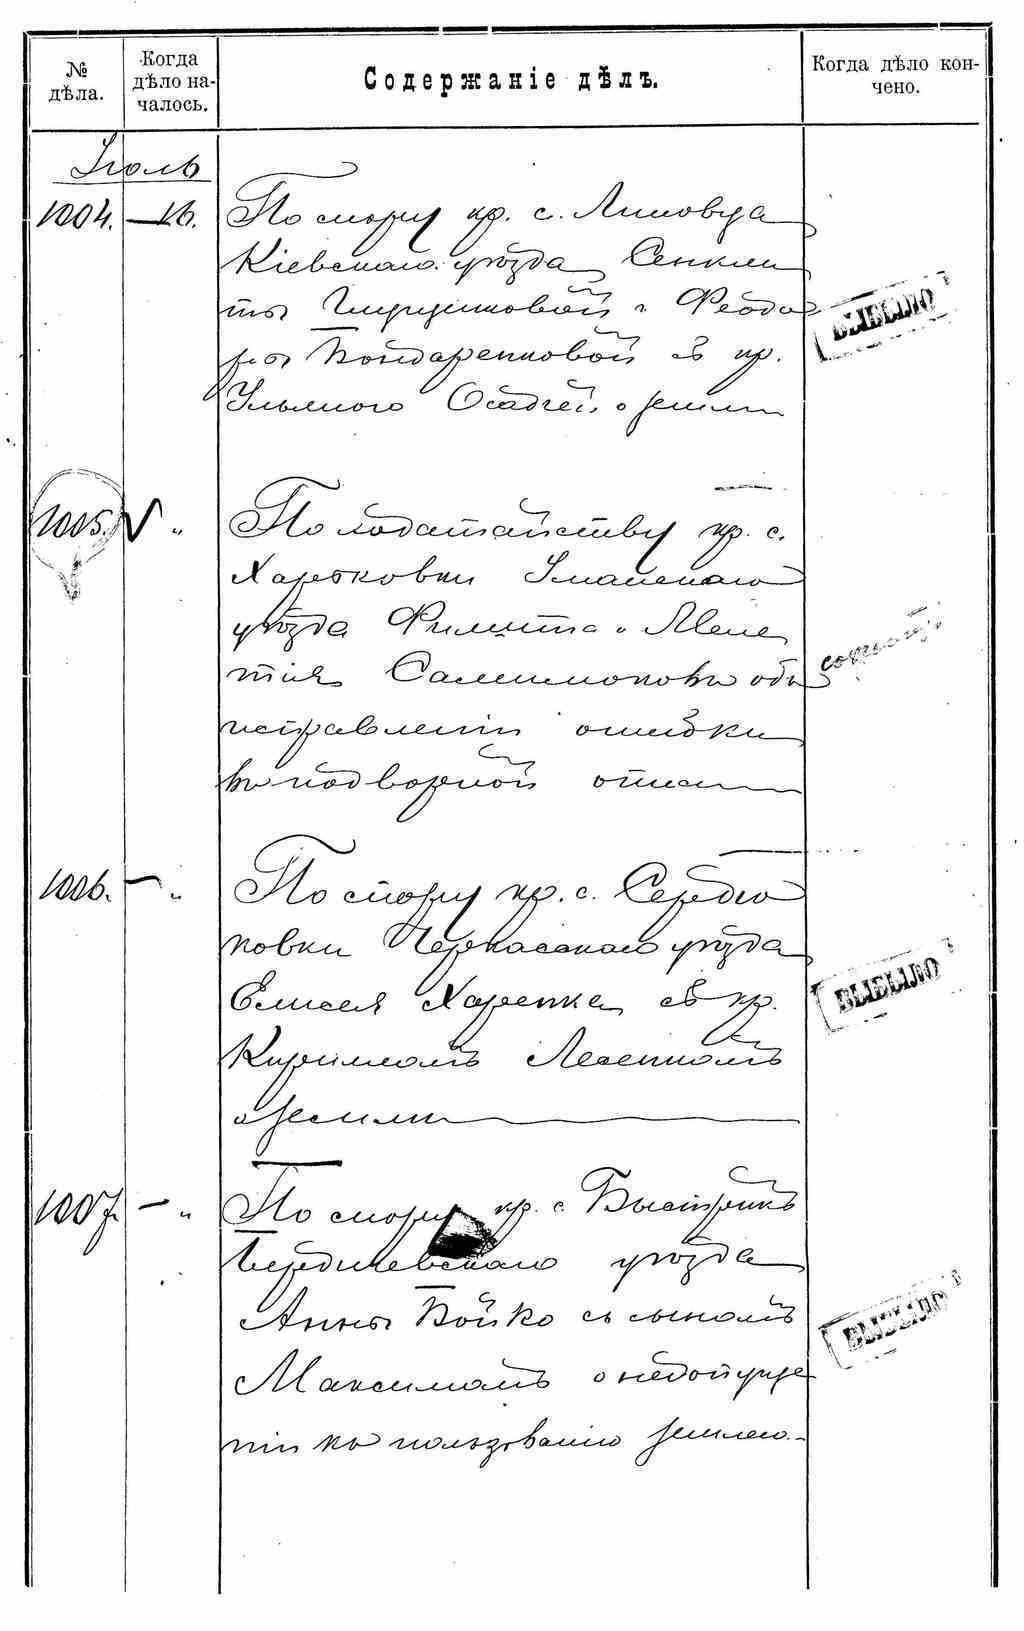 № дѣла.
Когда дѣло началось.
Содержаніе дѣлъ.
Когда дѣло кончено.
Іюль
1004. — 16.
По спору кр. с. Липовца
Кіевскаго уѣзда Сенкли
ты и Феодо
ры Бондаренковой съ кр.
Ульяною Осадчей о земли
ВЫБЫЛО
1005. V "
По ходатайству кр. с.
Харьковки Уманскаго
уѣзда Филиппа и Меле
тія объ
исправленіи ошибки
въ подворной описи
1006. — "
По спору кр. с. Сердю
ковки Черкасскаго уѣзда
Елисея Харенка съ кр.
Кирилломъ Лесенкомъ
о земли
ВЫБЫЛО
1007. — "
По спору кр. с. Быстрикъ
Бердичевскаго уѣзда
Анны Бойко съ сыномъ
Максимомъ о недопуще
ніи къ пользованію землею.
ВЫБЫЛО